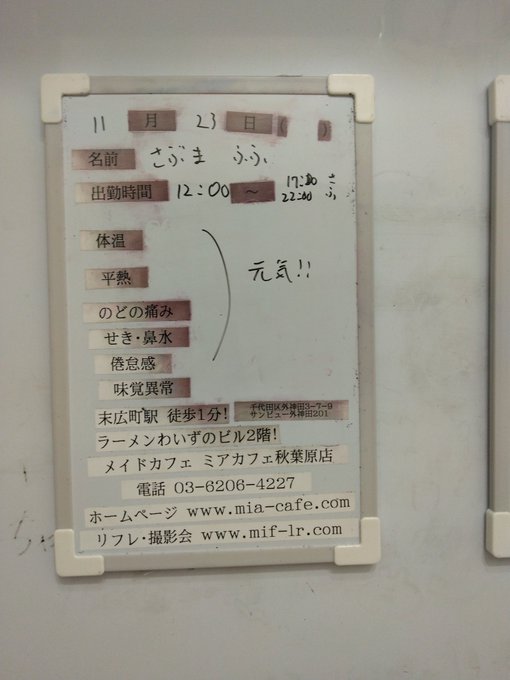 11 月 23 日 ( )
名前 さぶま ふふ
出勤時間 12:00 〜 17:00 さ
22:00 ふ
体温
平熱
元気!!
のどの痛み
せき・鼻水
倦怠感
味覚異常
末広町駅 徒歩1分! 千代田区外神田3-7-9
サンビュー外神田201
ラーメンわいずのビル2階!
メイドカフェ ミアカフェ秋葉原店
電話 03-6206-4227
ホームページ www.mia-cafe.com
リフレ・撮影会 www.mif-lr.com